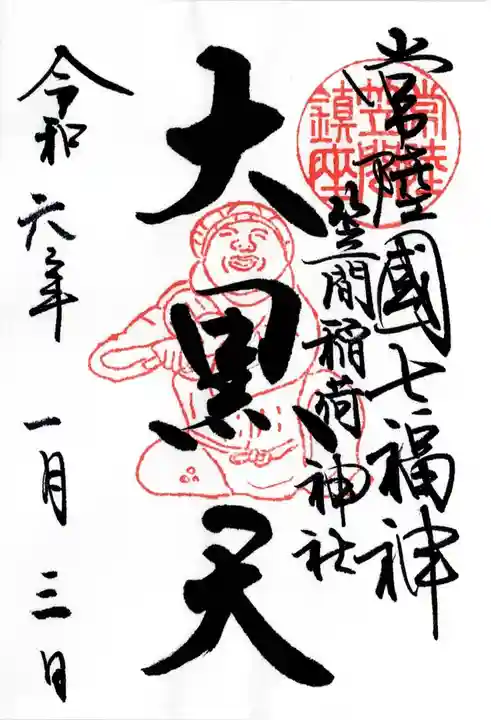 常陸國七福神
笠間稲荷神社
大黒天
令和六年一月三日
常陸
笠間
鎮座